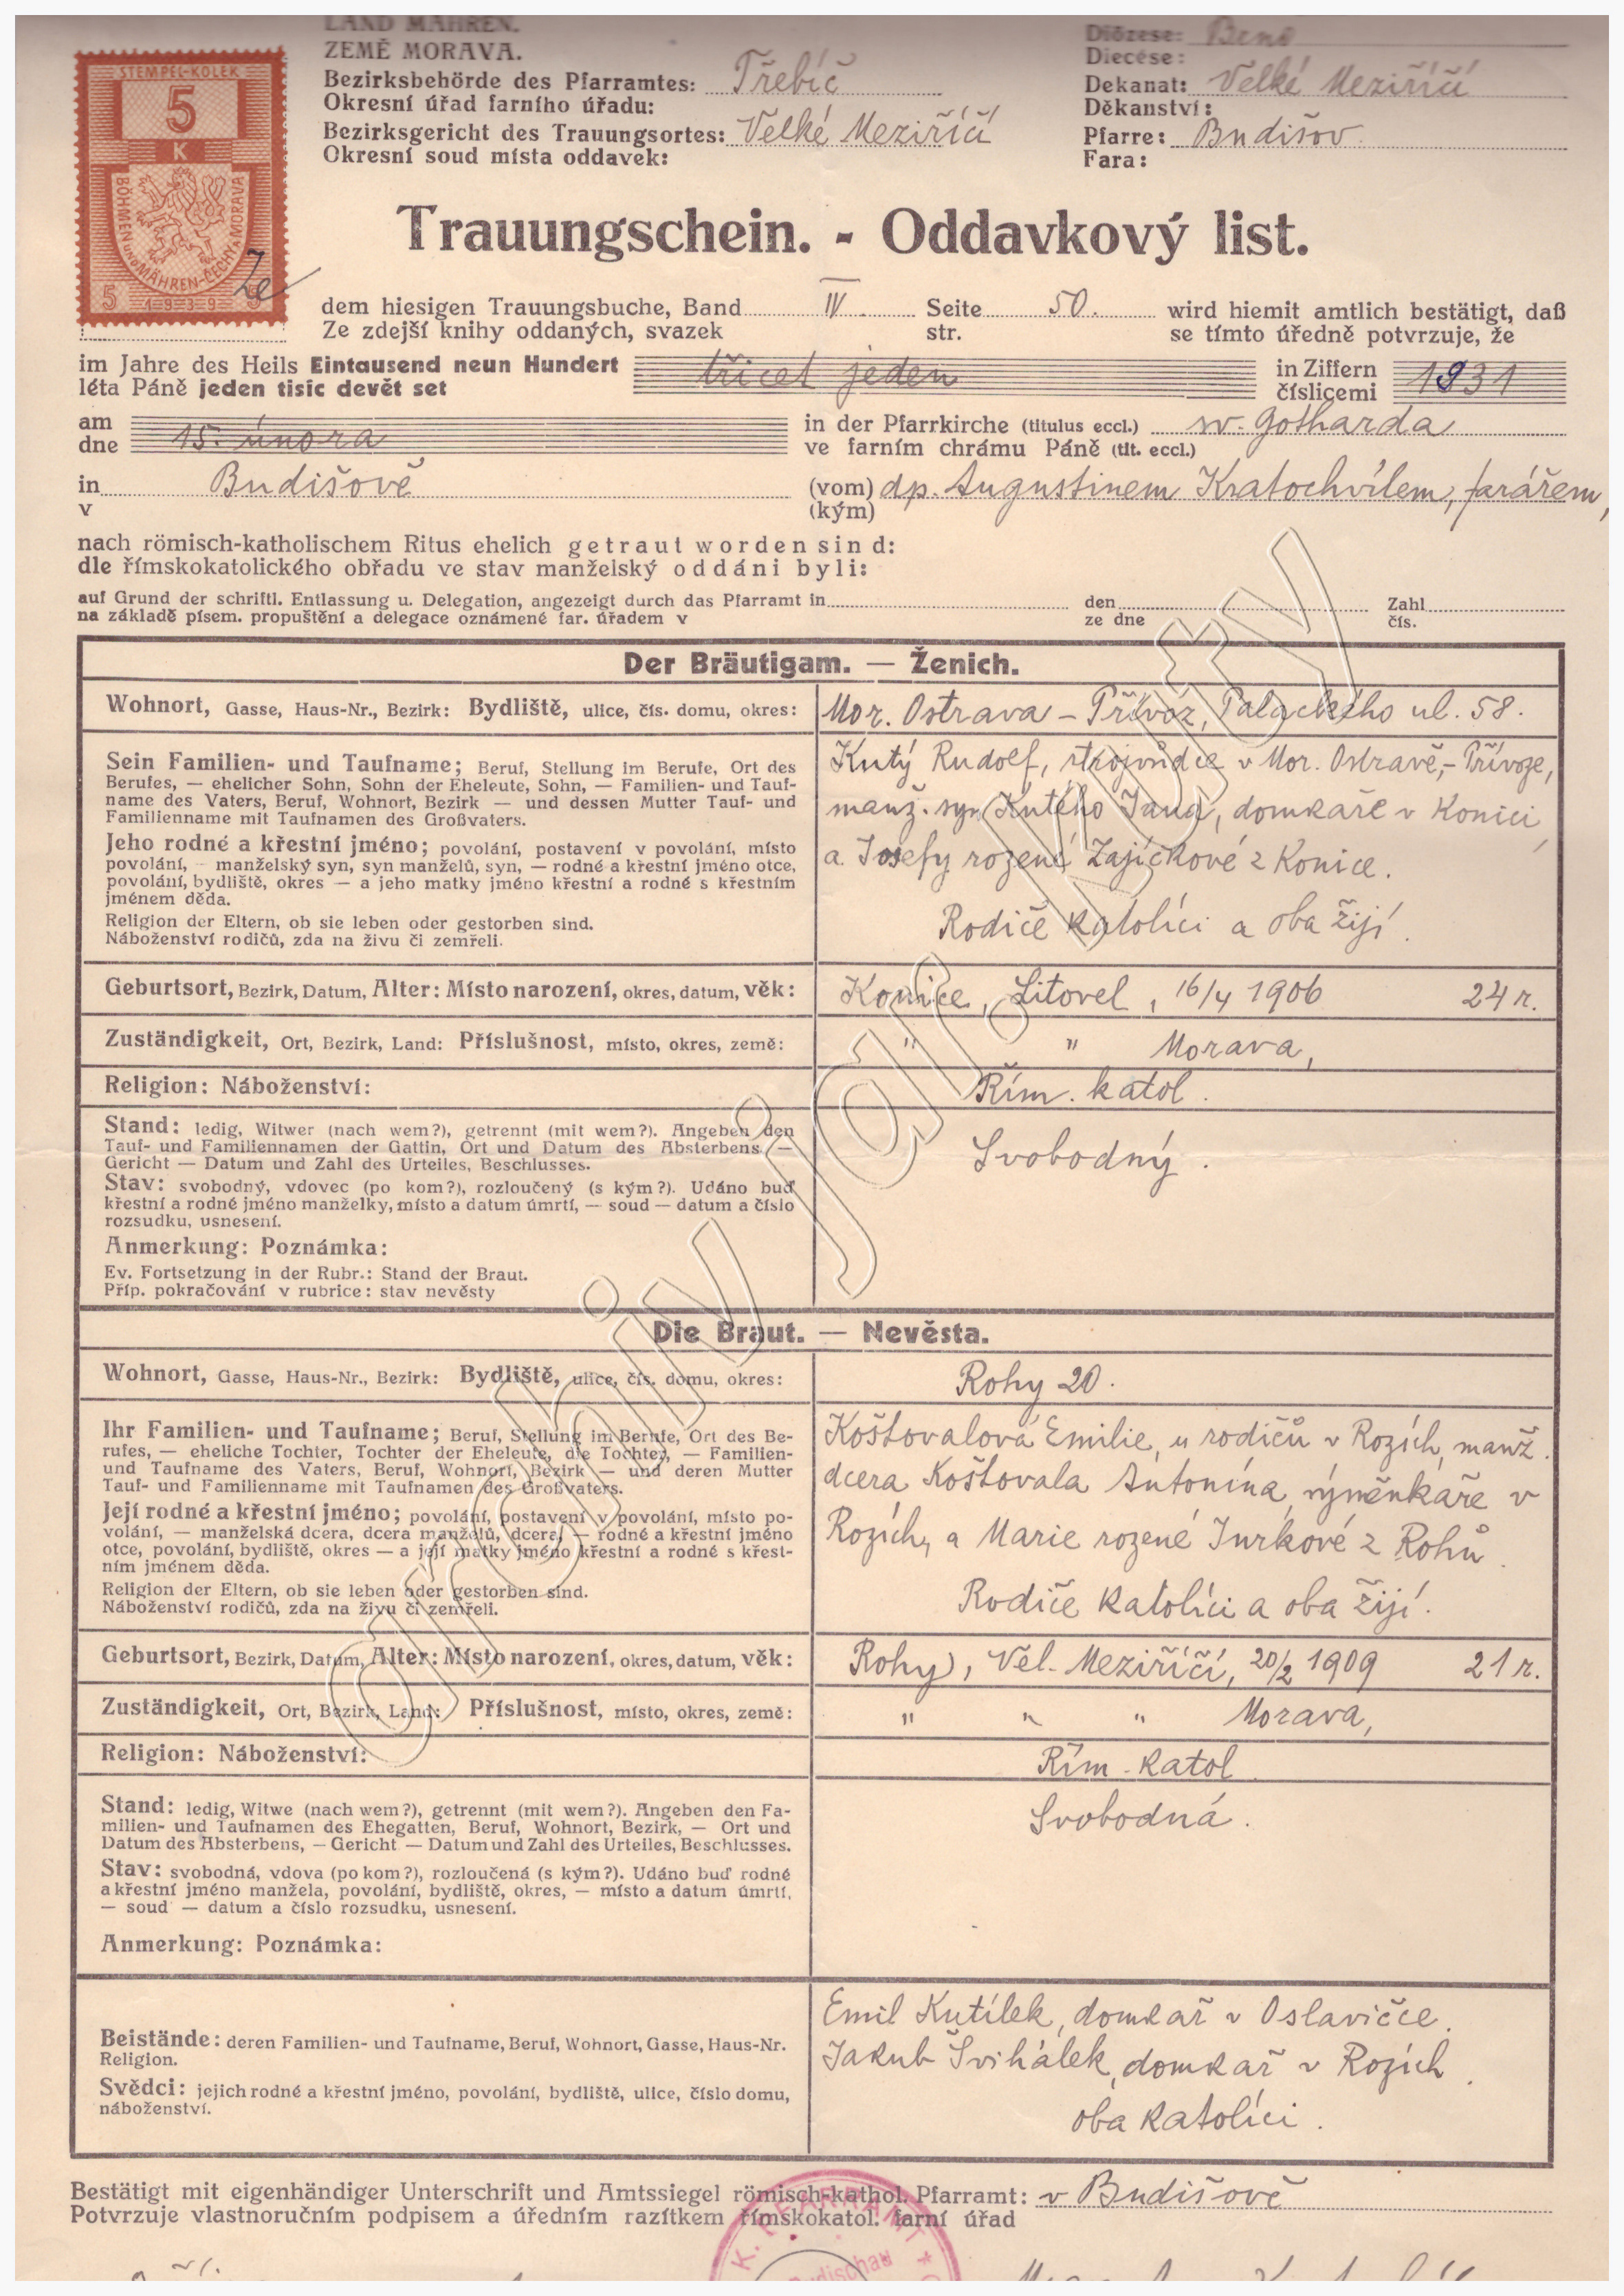 LAND MÄHREN.
ZEMĚ MORAVA.
Bezirksbehörde des Pfarramtes: Třebíč
Okresní úřad farního úřadu:
Bezirksgericht des Trauungsortes: Velké Meziříčí
Okresní soud místa oddavek:
Diözese: Brno
Diecése:
Dekanat: Velké Meziříčí
Děkanství:
Pfarre: Budišov.
Fara:
STEMPEL-KOLEK
5
K
BÖHMEN und MÄHREN-ČECHY A MORAVA
5 1939 5
Ze
Trauungschein. - Oddavkový list.
dem hiesigen Trauungsbuche, Band IV. Seite 50. wird hiemit amtlich bestätigt, daß
Ze zdejší knihy oddaných, svazek str. se tímto úředně potvrzuje, že
im Jahre des Heils Eintausend neun Hundert třicet jeden in Ziffern 1931
léta Páně jeden tisíc devět set číslicemi
am 15. února in der Pfarrkirche (titulus eccl.) sv. Gotharda
dne ve farním chrámu Páně (tit. eccl.)
in Budišově (vom) dp. Augustinem Kratochvílem, farářem,
v (kým)
nach römisch-katholischem Ritus ehelich getraut worden sind:
dle římskokatolického obřadu ve stav manželský oddáni byli:
auf Grund der schriftl. Entlassung u. Delegation, angezeigt durch das Pfarramt in den Zahl
na základě písem. propuštění a delegace oznámené far. úřadem v ze dne čís.
Der Bräutigam. — Ženich.
Wohnort, Gasse, Haus-Nr., Bezirk: Bydliště, ulice, čís. domu, okres: Mor. Ostrava - Přívoz, Palackého ul. 58.
Sein Familien- und Taufname; Beruf, Stellung im Berufe, Ort des
Berufes, — ehelicher Sohn, Sohn der Eheleute, Sohn, — Familien- und Tauf-
name des Vaters, Beruf, Wohnort, Bezirk — und dessen Mutter Tauf- und
Familienname mit Taufnamen des Großvaters.
Jeho rodné a křestní jméno; povolání, postavení v povolání, místo
povolání, — manželský syn, syn manželů, syn, — rodné a křestní jméno otce,
povolání, bydliště, okres — a jeho matky jméno křestní a rodné s křestním
jménem děda.
Religion der Eltern, ob sie leben oder gestorben sind.
Náboženství rodičů, zda na živu či zemřeli.
Kutý Rudolf, strojvůdce v Mor. Ostravě,- Přívoze,
manž. syn Kutého Jana, domkáře v Konici
a Josefy rozené Zajíčkové z Konice.
Rodiče katolíci a oba žijí.
Geburtsort, Bezirk, Datum, Alter: Místo narození, okres, datum, věk: Konice, Litovel, 16/4 1906 24 r.
Zuständigkeit, Ort, Bezirk, Land: Příslušnost, místo, okres, země: " " Morava,
Religion: Náboženství: Řím. katol.
Stand: ledig, Witwer (nach wem?), getrennt (mit wem?). Angeben den
Tauf- und Familiennamen der Gattin, Ort und Datum des Absterbens —
Gericht — Datum und Zahl des Urteiles, Beschlusses.
Stav: svobodný, vdovec (po kom?), rozloučený (s kým?). Udáno buď
křestní a rodné jméno manželky, místo a datum úmrtí, — soud — datum a číslo
rozsudku, usnesení.
Svobodný.
Anmerkung: Poznámka:
Ev. Fortsetzung in der Rubr.: Stand der Braut.
Příp. pokračování v rubrice: stav nevěsty
Die Braut. — Nevěsta.
Wohnort, Gasse, Haus-Nr., Bezirk: Bydliště, ulice, čís. domu, okres: Rohy 20.
Ihr Familien- und Taufname; Beruf, Stellung im Berufe, Ort des Be-
rufes, — eheliche Tochter, Tochter der Eheleute, die Tochter, — Familien-
und Taufname des Vaters, Beruf, Wohnort, Bezirk — und deren Mutter
Tauf- und Familienname mit Taufnamen des Großvaters.
Její rodné a křestní jméno; povolání, postavení v povolání, místo po-
volání, — manželská dcera, dcera manželů, dcera, — rodné a křestní jméno
otce, povolání, bydliště, okres — a její matky jméno křestní a rodné s křest-
ním jménem děda.
Religion der Eltern, ob sie leben oder gestorben sind.
Náboženství rodičů, zda na živu či zemřeli.
Koštovalová Emilie, u rodičů v Rozích, manž.
dcera Koštovala Antonína, výměnkáře v
Rozích, a Marie rozené Jurkové z Rohů.
Rodiče katolíci a oba žijí.
Geburtsort, Bezirk, Datum, Alter: Místo narození, okres, datum, věk: Rohy, Vel. Meziříčí, 20/2 1909 21 r.
Zuständigkeit, Ort, Bezirk, Land: Příslušnost, místo, okres, země: " " " Morava,
Religion: Náboženství: Řím. katol
Stand: ledig, Witwe (nach wem?), getrennt (mit wem?). Angeben den Fa-
milien- und Taufnamen des Ehegatten, Beruf, Wohnort, Bezirk, — Ort und
Datum des Absterbens, — Gericht — Datum und Zahl des Urteiles, Beschlusses.
Stav: svobodná, vdova (po kom?), rozloučená (s kým?). Udáno buď rodné
a křestní jméno manžela, povolání, bydliště, okres, — místo a datum úmrtí,
— soud — datum a číslo rozsudku, usnesení.
Svobodná.
Anmerkung: Poznámka:
Beistände: deren Familien- und Taufname, Beruf, Wohnort, Gasse, Haus-Nr.
Religion.
Svědci: jejich rodné a křestní jméno, povolání, bydliště, ulice, číslo domu,
náboženství.
Emil Kutílek, domkář v Oslavičce.
Jakub Švihálek, domkář v Rozích.
oba katolíci.
Bestätigt mit eigenhändiger Unterschrift und Amtssiegel römisch-kathol. Pfarramt: v Budišově
Potvrzuje vlastnoručním podpisem a úředním razítkem římskokatol. farní úřad
K. PFARRAMT *
Budischau
archiv jar. Kutý